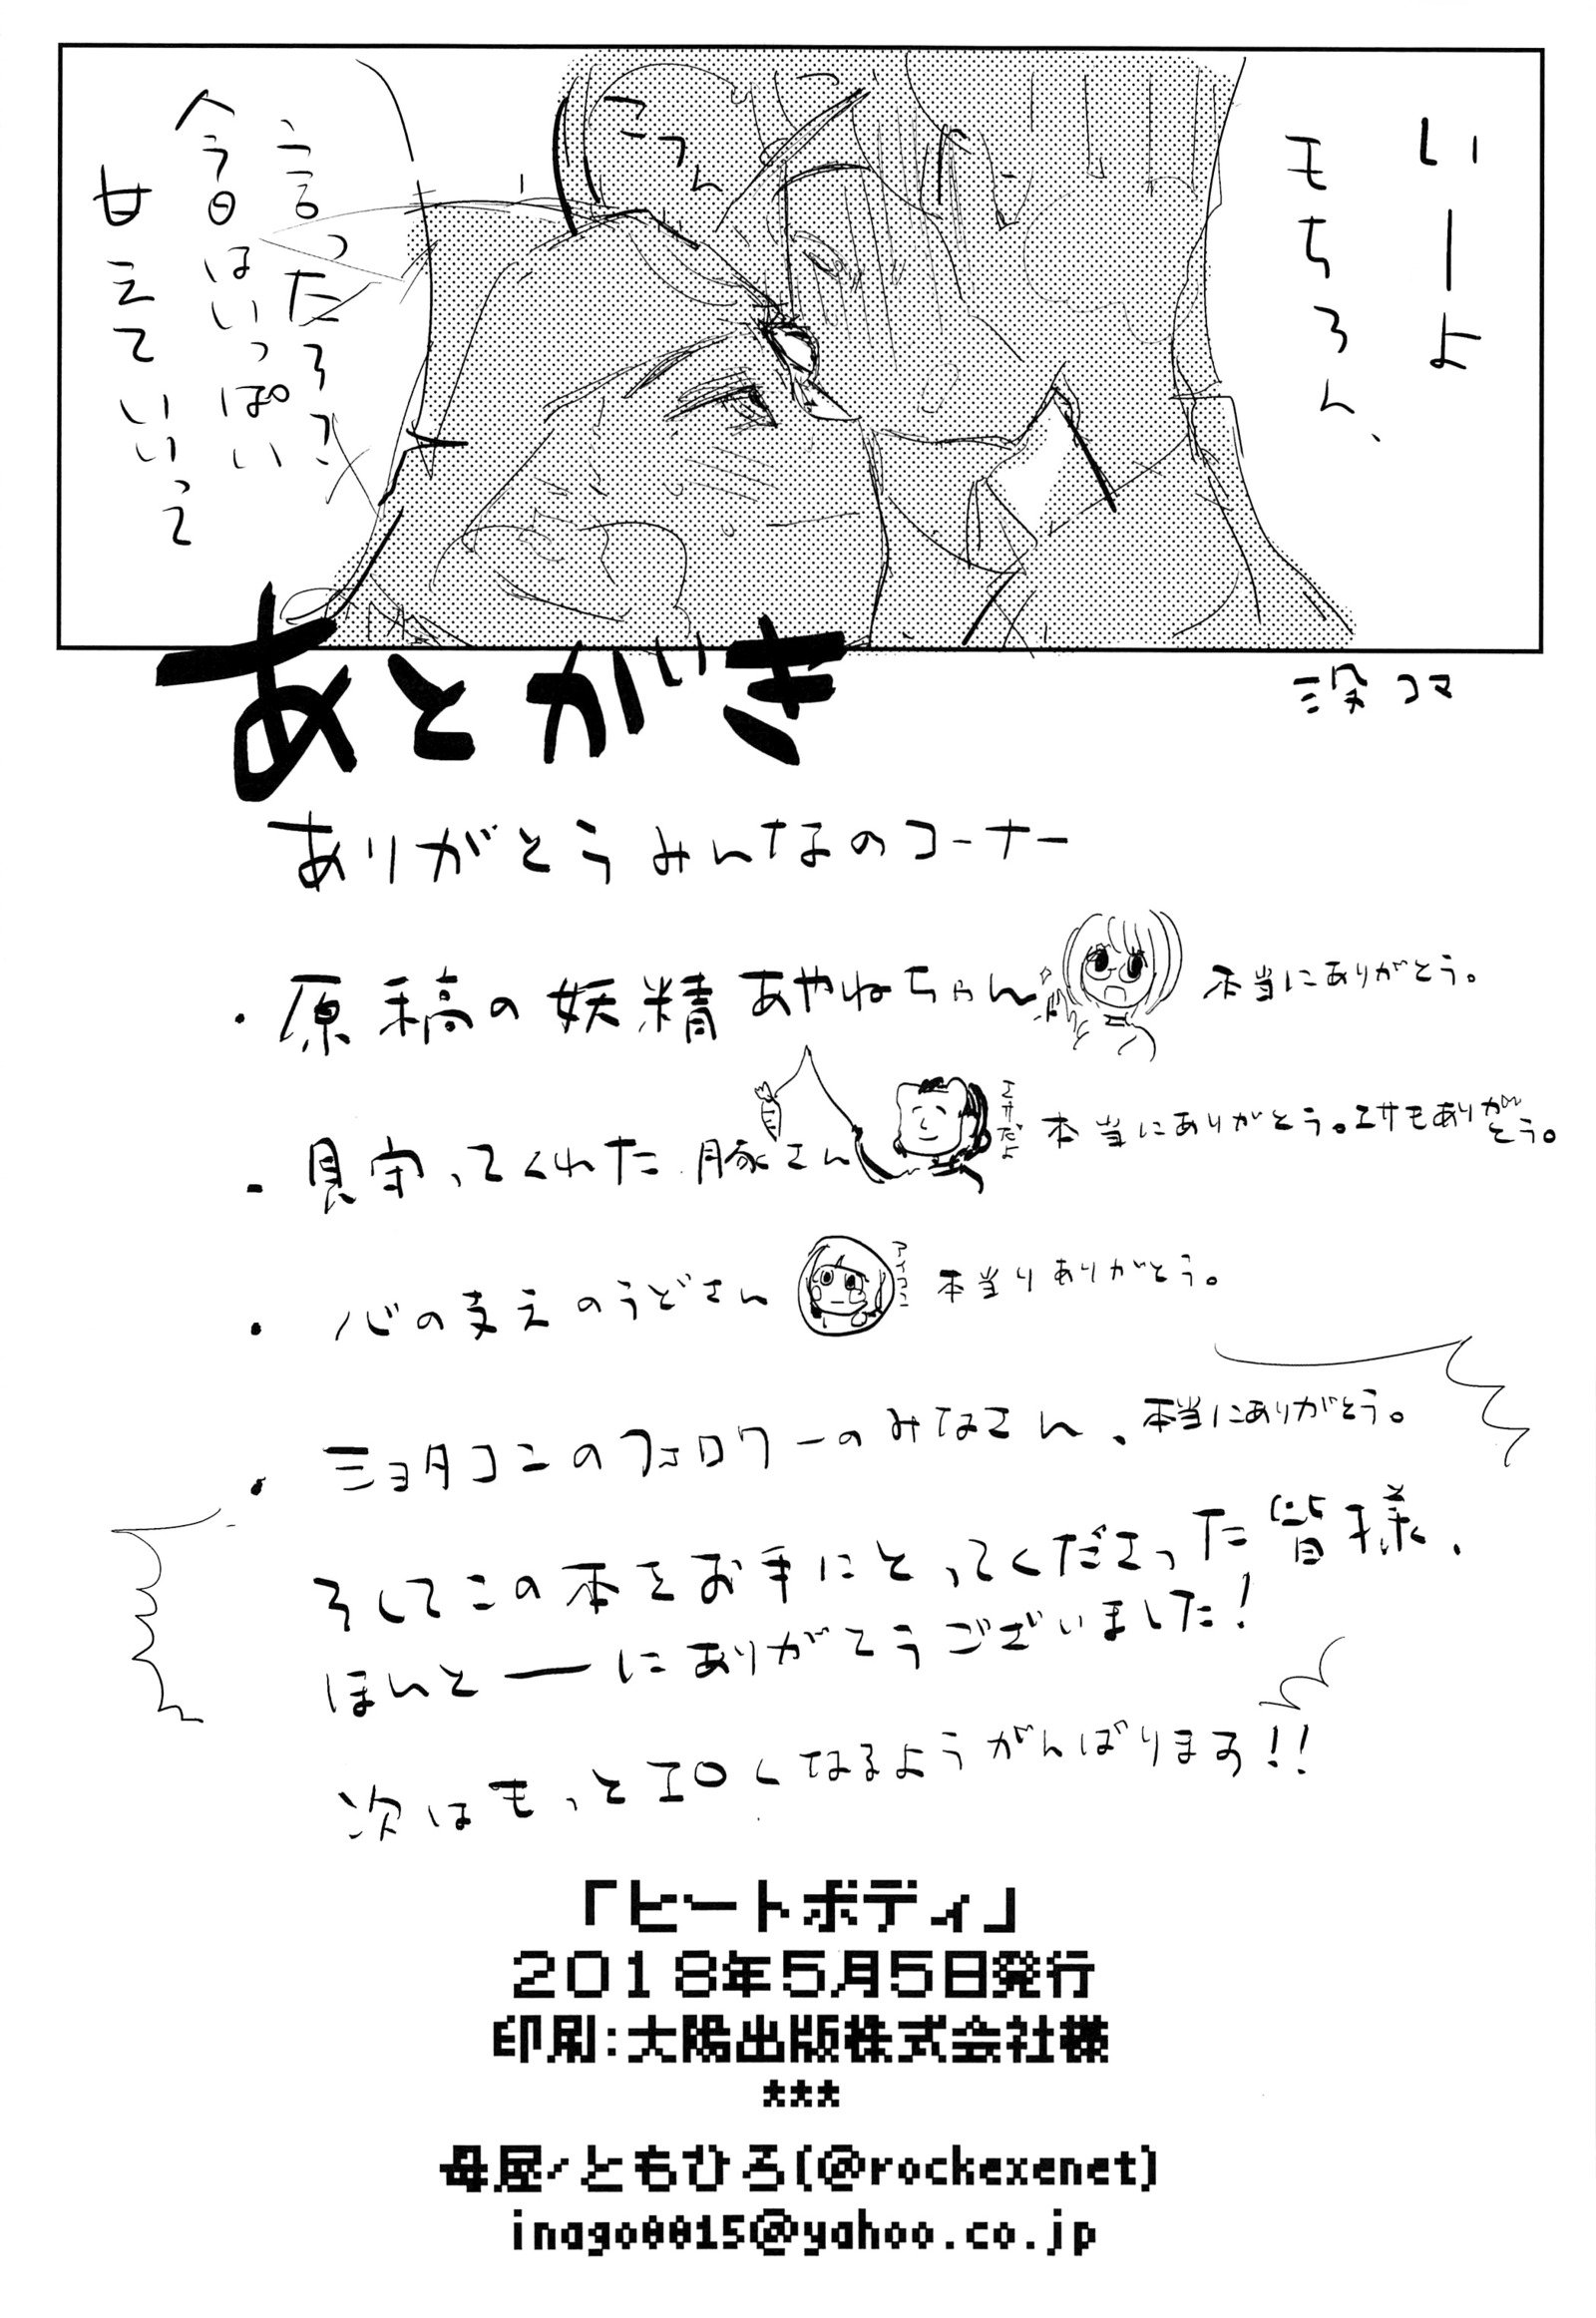 いーよ
モちろん、
こつん
言ったろ？
今日はいっぱい
甘えていいって
没コマ
あとがき
ありがとうみんなのコーナー
・原稿の妖精あやねちゃん 本当にありがとう。
・見守ってくれた豚さん エサだよ 本当にありがとう。エサもありがとう。
・心の支えのうどさん アイコン 本当りありがとう。
・ショタコンのフォロワーのみなさん、本当にありがとう。
そしてこの本をお手にとってくださった皆様、
ほんとーにありがとうございました!
次はもっとエロくなるようがんばります!!
「ヒートボディ」
2018年5月5日発行
印刷:大陽出版株式会社様
***
母屋/ともひろ(@rockexenet)
inago0015@yahoo.co.jp